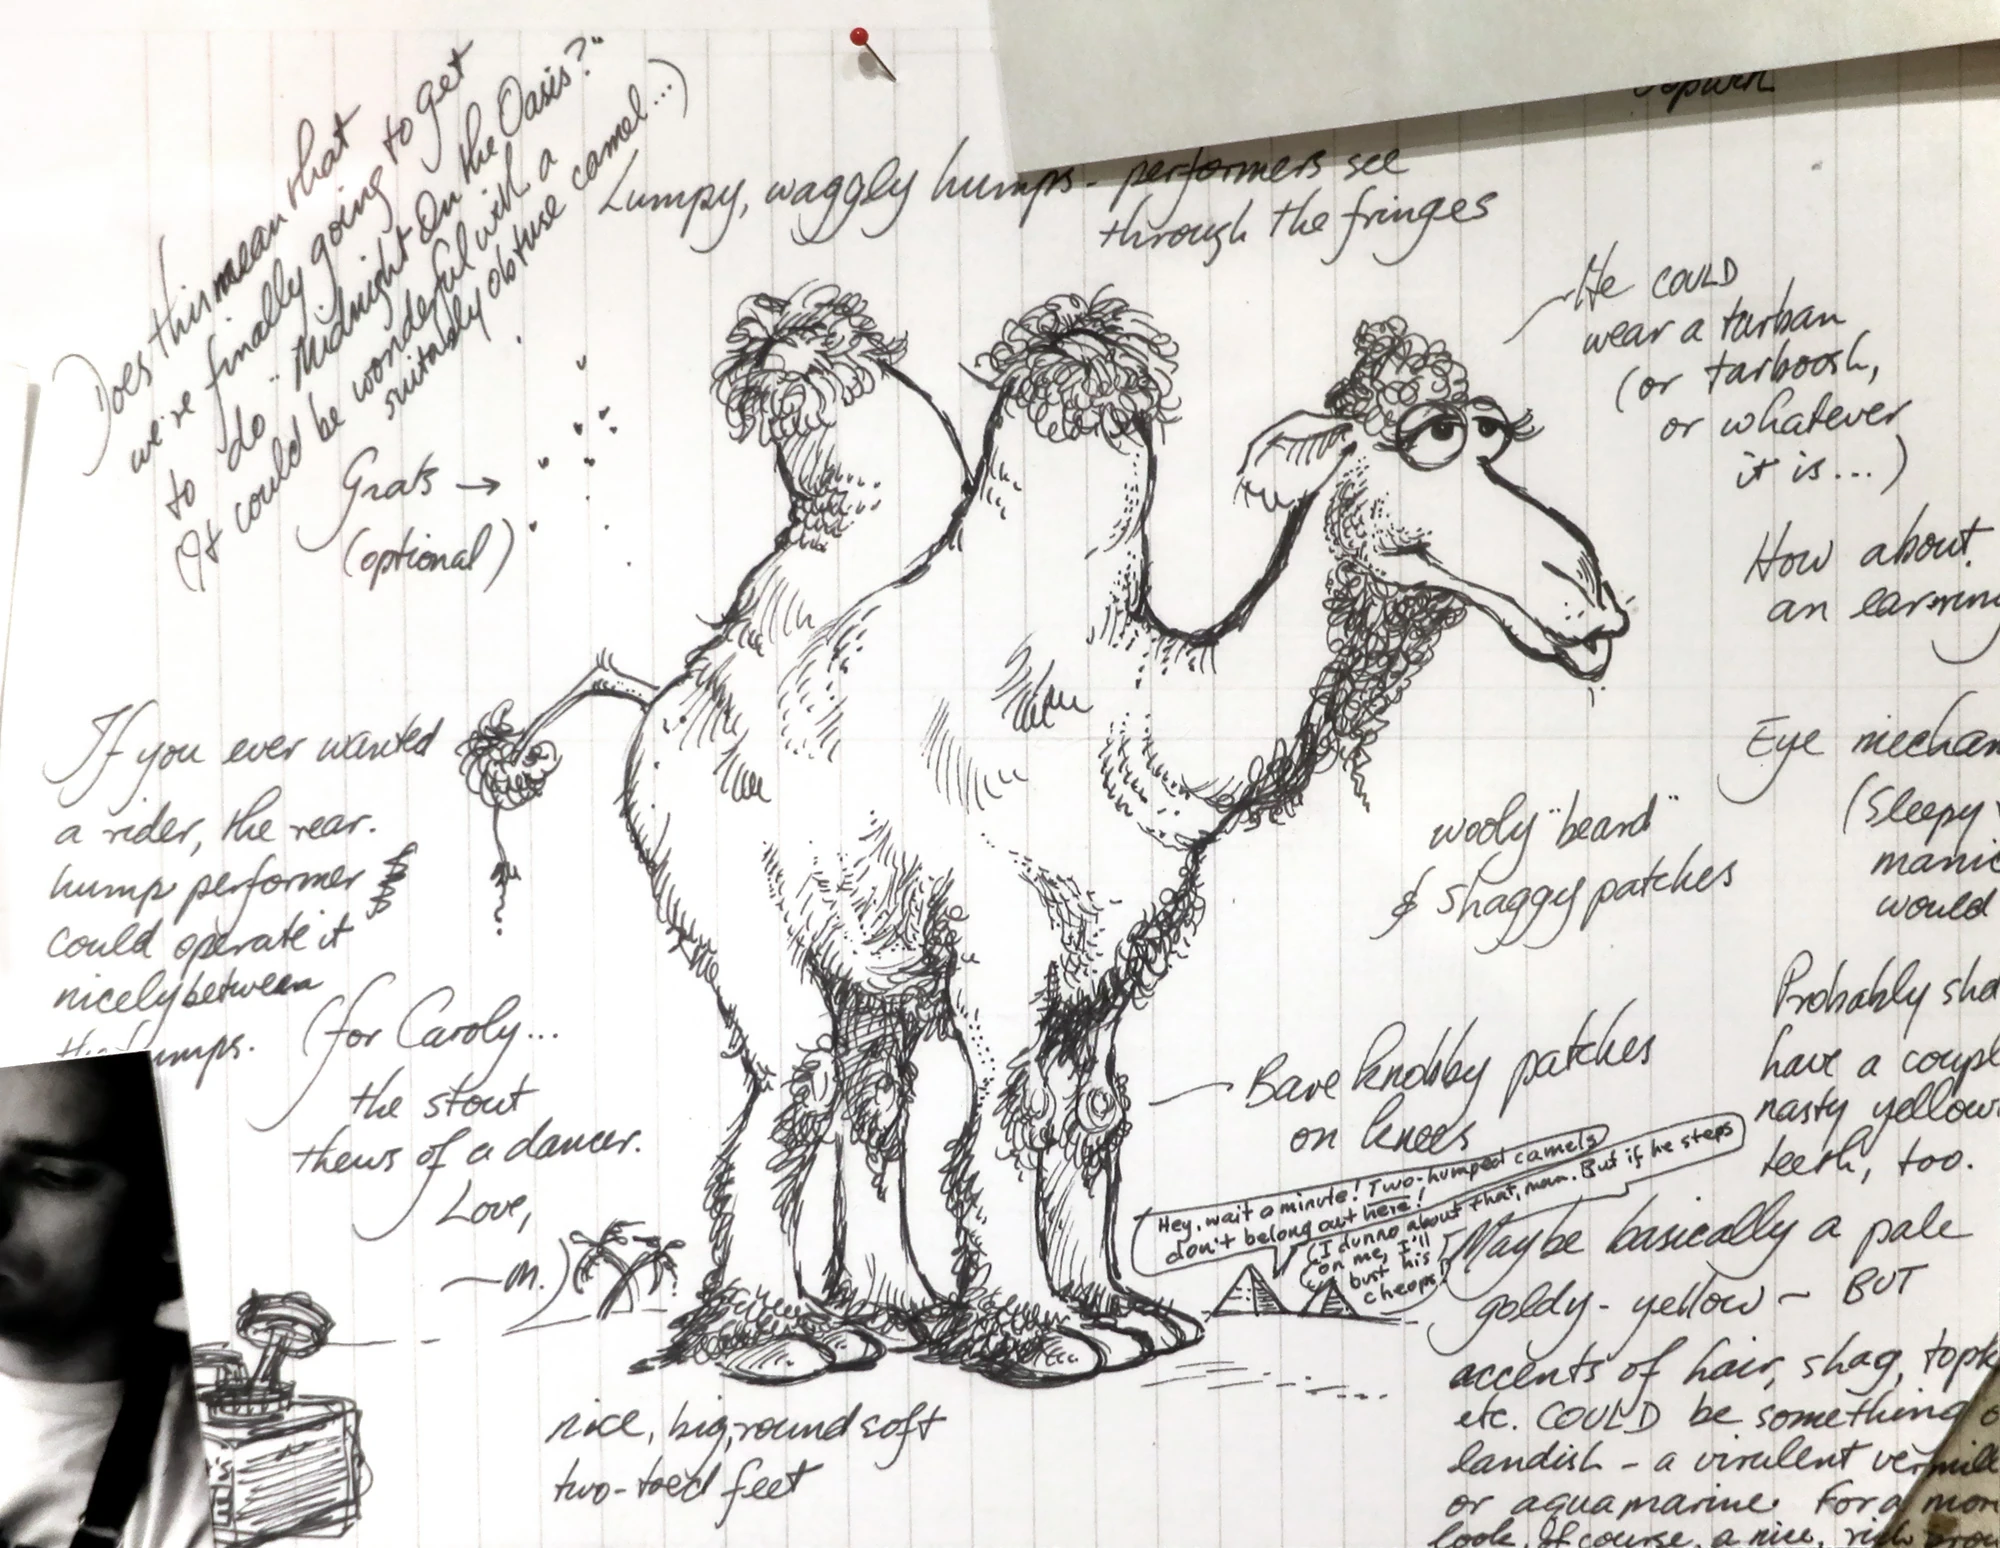 Does this mean that
we're finally going to get
to do "Midnight On the Oasis?"
(It could be wonderful with a
suitably obtuse camel...)
Lumpy, waggly humps - performers see
through the fringes
He COULD
wear a turban
(or tarboosh,
or whatever
it is...)
How about
an earring
Gnats →
(optional)
If you ever wanted
a rider, the rear
hump performer
could operate it
nicely between
humps.
(for Caroly...
the stout
thews of a dancer.
Love,
—M.)
Eye mechan
(sleepy
manic
would
wooly "beard"
& shaggy patches
Probably sho
have a coupl
nasty yellow
teeth, too.
Bare knobby patches
on knees
Hey, wait a minute! Two-humped camels
don't belong out here!
(I dunno about that, man. But if he steps
on me, I'll
bust his
cheops!
Maybe basically a pale
goldy-yellow - BUT
accents of hair, shag, topk
etc. COULD be something o
landish - a virulent vermill
or aquamarine. For a mor
look, of course, a nice, rich brow
nice, big, round soft
two-toed feet